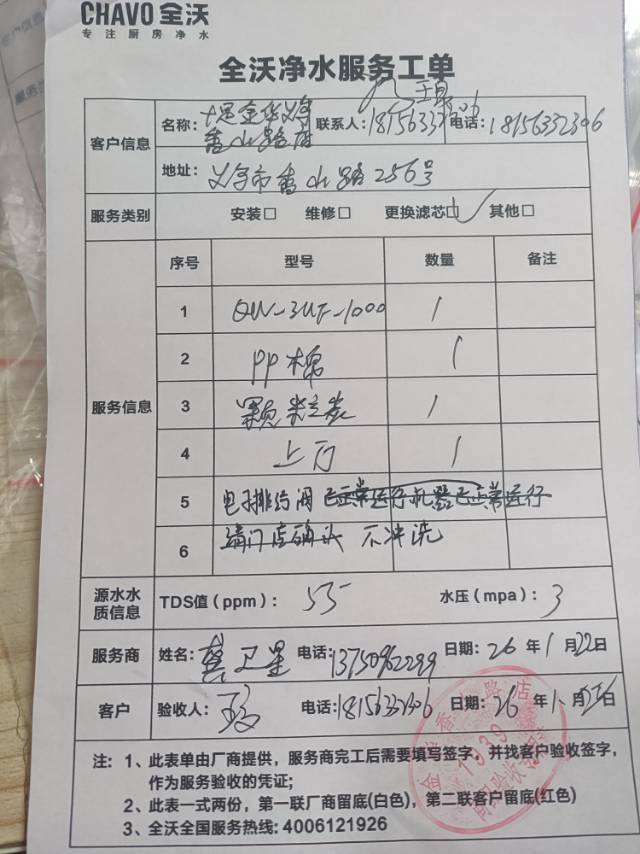 CHAVO 全沃
专注厨房净水
全沃净水服务工单
客户信息
名称: 金华义乌香山路店 联系人: 18156332306 电话: 18156332306
地址: 义乌市香山路256号
服务类别 安装□ 维修□ 更换滤芯□✓ 其他□
服务信息
序号 型号 数量 备注
1 QW-3UF-1000 1
2 PP棉 1
3 颗粒炭 1
4 1
5 已正常运行机器已正常运行
6 不冲洗
源水水质信息 TDS值(ppm): 55 水压(mpa): 3
服务商 姓名: 蔡卫星 电话: 13750962299 日期: 26年1月22日
客户 验收人: 电话: 18156332306 日期: 26年1月日
注: 1、此表单由厂商提供,服务商完工后需要填写签字,并找客户验收签字,
作为服务验收的凭证;
2、此表一式两份,第一联厂商留底(白色),第二联客户留底(红色)
3、全沃全国服务热线: 4006121926